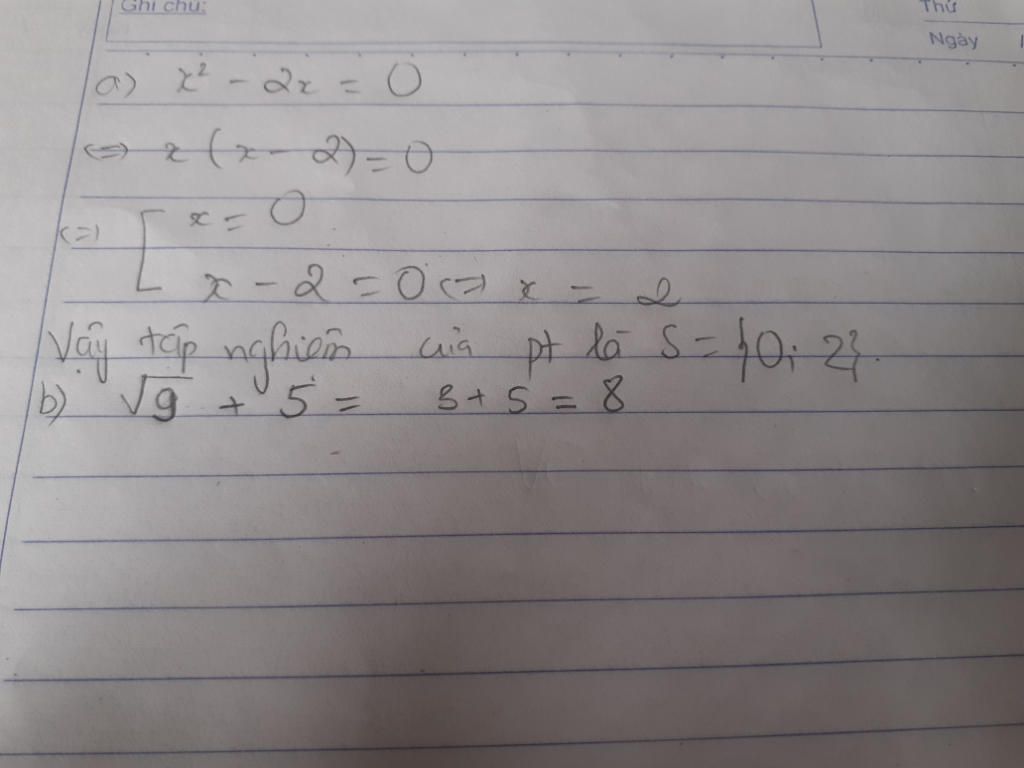 Ghi chú:
Thứ
Ngày
a) x² - 2x = 0
<=> x (x - 2) = 0
<=> [ x = 0
x - 2 = 0 <=> x = 2
Vậy tập nghiệm của pt là S = {0; 2}.
b) √9 + 5 = 3 + 5 = 8